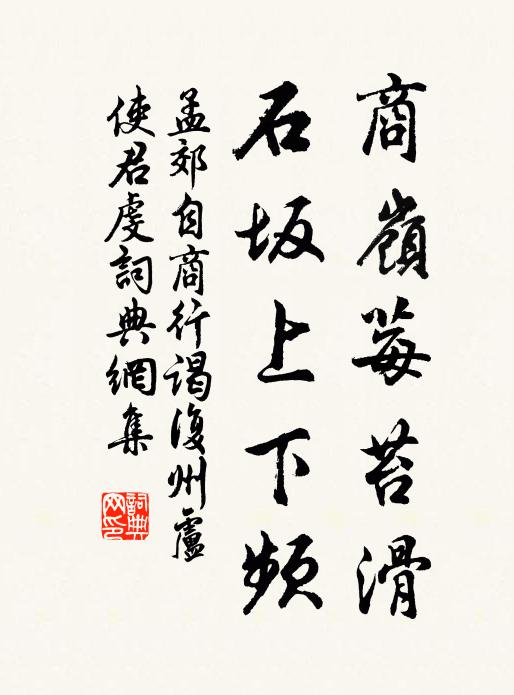 商嶺莓苔滑
石坂上下頻
孟郊自商行謁復州盧
使君虔詞典網集
詞典
网印